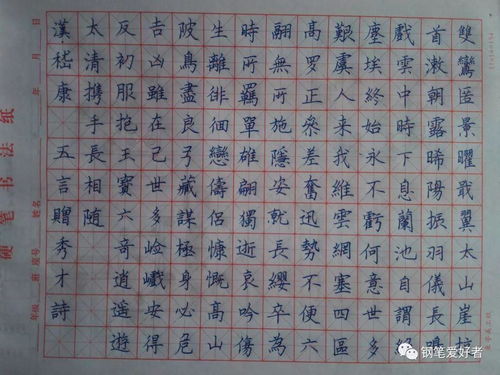 雙鸞匿景曜戢翼太山崖抗
首漱朝露晞陽振羽儀長鳴
戲雲中時下息蘭池自謂絕
塵埃終始永不虧何意世多
艱虞人來我維雲網塞四區
高罗正叅差奮迅勢不便六
翮無所施隱姿就長纓卒為
時所羈單雄翩獨逝哀吟傷
生離徘徊戀儔侶慷慨高山
陂鳥盡良弓藏謀極身必危
吉凶雖在己世多嶮巇安得
反初服抱玉寶六奇逍遥遊
太清携手長相随
漢嵇康 五言贈秀才詩
年级 班 座号 姓名 年 月 日
硬笔书法纸
钢笔爱好者